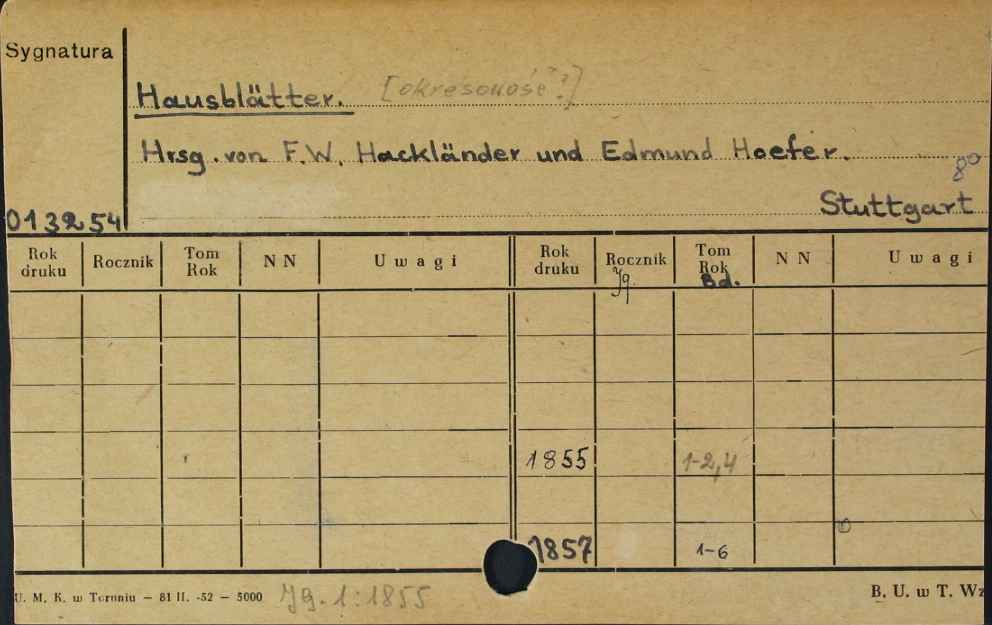 Sygnatura
Hausblätter. [okresowość?]
Hrsg. von F.W. Hackländer und Edmund Hoefer.
8°
Stuttgart
013254
Rok druku Rocznik Tom Rok NN Uwagi Rok druku Rocznik Jg. Tom Rok Bd. NN Uwagi
1855 1-2,4
1857 1-6
U. M. K. w Toruniu — 81 II. -52 — 5000 Jg. 1:1855 B. U. w T. Wz